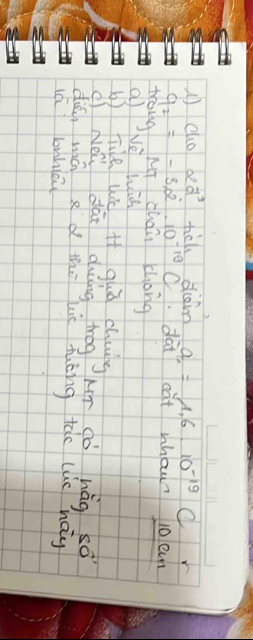 1) Cho 2đ² tích điểm q₁ = 1,6 . 10⁻¹⁹ C r
q₂ = - 3,2 . 10⁻¹⁹ C . đặt cắt nhau 10 cm
trong MT chân không
a) Vẽ hình
b) Tính lực tt giữa chúng
c) Nếu đặt chúng trog MT có hằg số
điện môi ε 2 thì lực tương tác lúc này
là bnhiêu